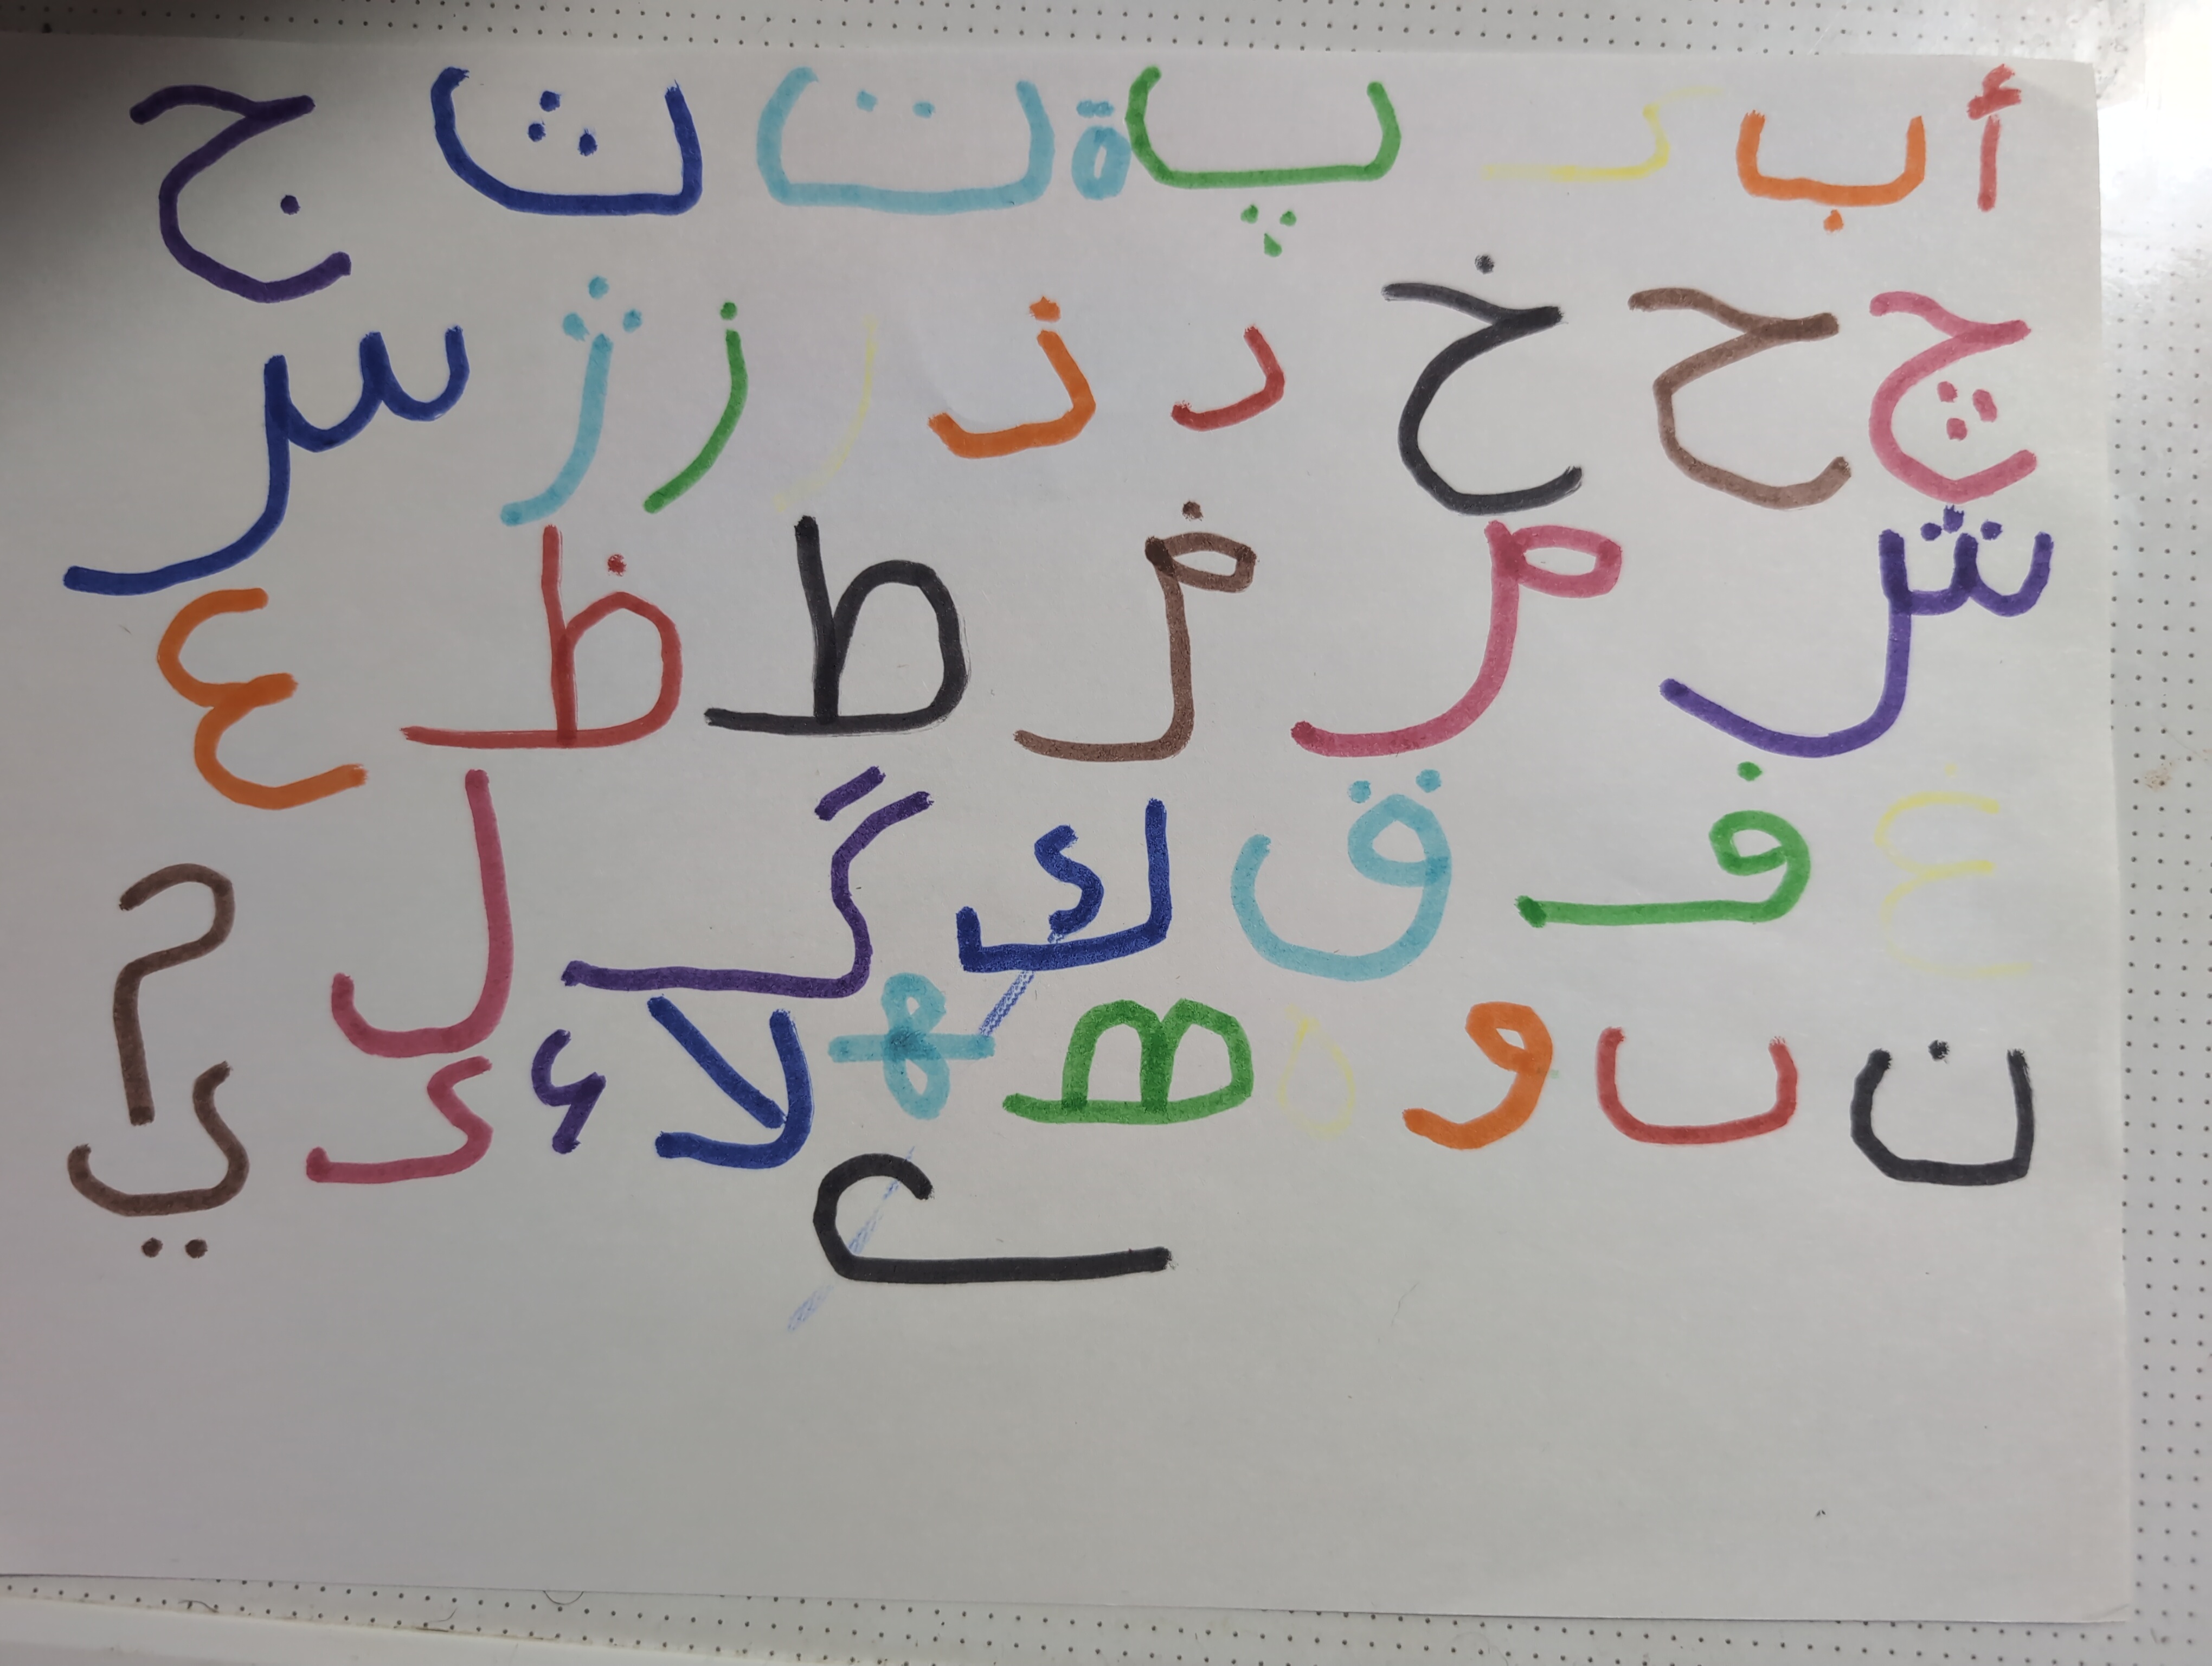 أ ب پ ة ت ث ج
چ ح خ د ذ ر ز ژ س
ش ص ض ط ظ ع
غ ف ق ك گ ل م
ن ں و ه ھ ـهـ لا ء ى ي
ے